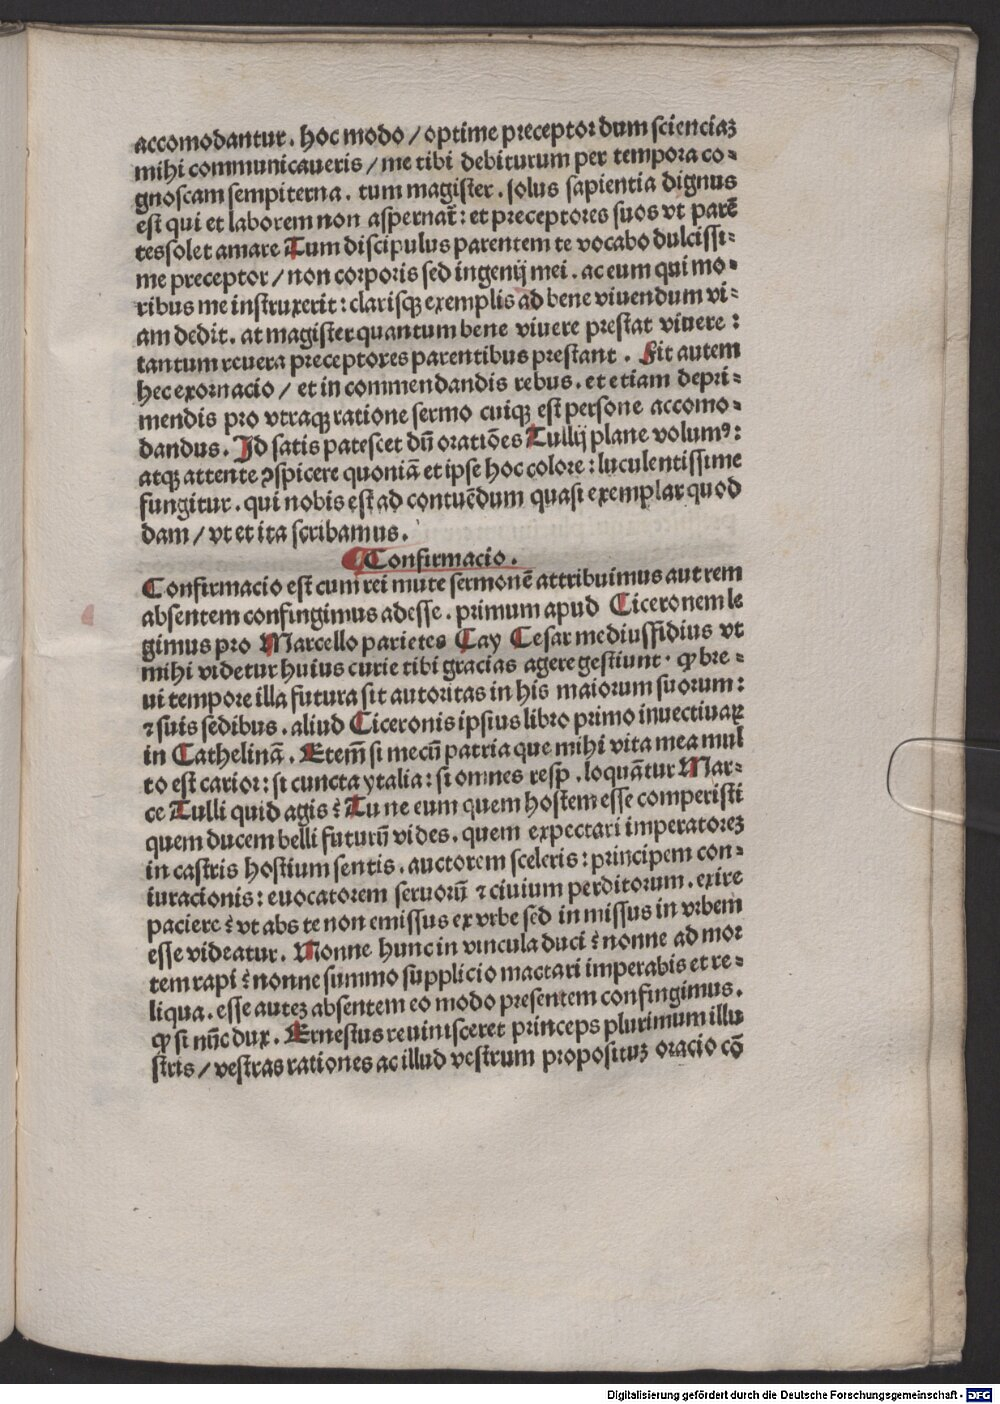 accomodantur . hoc modo / optime preceptor dum scienciaꝫ
mihi communicaueris / me tibi debiturum per tempora co⸗
gnoscam sempiterna . tum magister . solus sapientia dignus
est qui et laborem non aspernat᷑ : et preceptores suos vt parē
tes solet amare Tum discipulus parentem te vocabo dulcissi⸗
me preceptor / non corporis sed ingenij mei . ac eum qui mo⸗
ribus me instruxerit : clarisqꝫ exemplis ad bene viuendum vi⸗
am dedit . at magister quantum bene viuere prestat viuere :
tantum reuera preceptores parentibus prestant . Fit autem
hec exornacio / et in commendandis rebus . et etiam depri⸗
mendis pro vtraqꝫ ratione sermo cuiqꝫ est persone accomo⸗
dandus . Id satis patescet dū oratiōes Tullij plane volumꝰ :
atqꝫ attente ꝓspicere quoniā et ipse hoc colore : luculentissime
fungitur . qui nobis est ad contuēdum quasi exemplar quod
dam / vt et ita scribamus .
¶ Confirmacio .
Confirmacio est cum rei mute sermonē attribuimus aut rem
absentem confingimus adesse . primum apud Ciceronem le
gimus pro Marcello parietes Cay Cesar mediusfidius vt
mihi videtur huius curie tibi gracias agere gestiunt . ꝙ bre⸗
ui tempore illa futura sit autoritas in his maiorum suorum :
⁊ suis sedibus . aliud Ciceronis ipsius libro primo inuectiuaꝝ
in Cathelinā . Etem̄ si mecū patria que mihi vita mea mul
to est carior : si cuncta ytalia : si omnes resp . loquātur Mar⸗
ce Tulli quid agis ? Tu ne eum quem hostem esse comperisti
quem ducem belli futurū vides . quem expectari imperatoreꝫ
in castris hostium sentis . auctorem sceleris : principem con⸗
iuracionis : euocatorem seruorū ⁊ ciuium perditorum . exire
paciere ? vt abs te non emissus ex vrbe sed in missus in vrbem
esse videatur . Nonne hunc in vincula duci ? nonne ad mor
tem rapi ? nonne summo supplicio mactari imperabis et re⸗
liqua . esse auteꝫ absentem eo modo presentem confingimus .
ꝙ si nūc dux . Ernestus reuiuisceret princeps plurimum illu
stris / vestras rationes ac illud vestrum proposituꝫ oracio cō
Digitalisierung gefördert durch die Deutsche Forschungsgemeinschaft - DFG